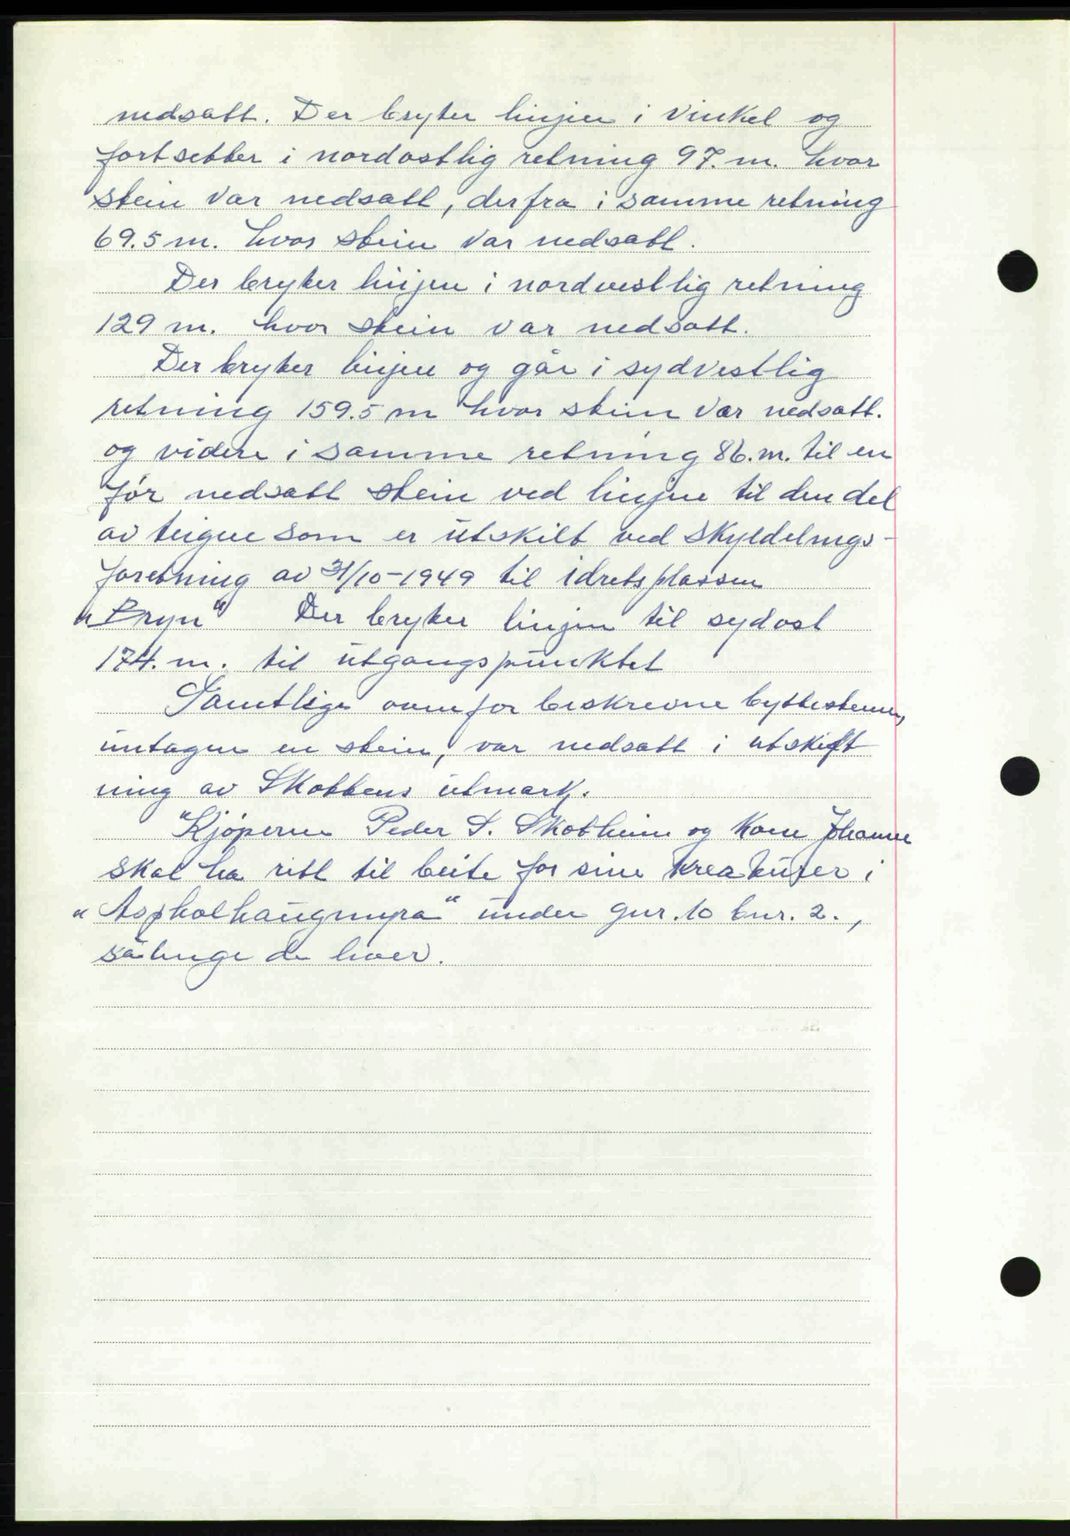 nedsatt. Der bryter linjen i vinkel og
fortsetter i nordostlig retning 97. m. hvor
stein var nedsatt, derfra i samme retning
69.5 m. hvor stein var nedsatt.
Der bryter linjen i nordvestlig retning
129 m. hvor stein var nedsatt.
Der bryter linjen og går i sydvestlig
retning 159.5 m hvor stein var nedsatt.
og videre i samme retning 86. m. til en
før nedsatt stein ved linjene til den del
av teigen som er utskilt ved skyldelings-
foretning av 31/10-1949 til idretsplassen
"Bryn" Der bryter linjen til sydost
174. m. til utgangspunktet
Samtlige ovenfor beskrevne byttesteiner,
untagen en stein, var nedsatt i utskift
ning av Skottens utmark.
"Kjøperne Peder S. Skotheim og kone Johanne
skal ha rett til beite for sine kreaturer i
"Aspholhaugmyra" under gnr. 10 bnr. 2.,
sålenge de lever.